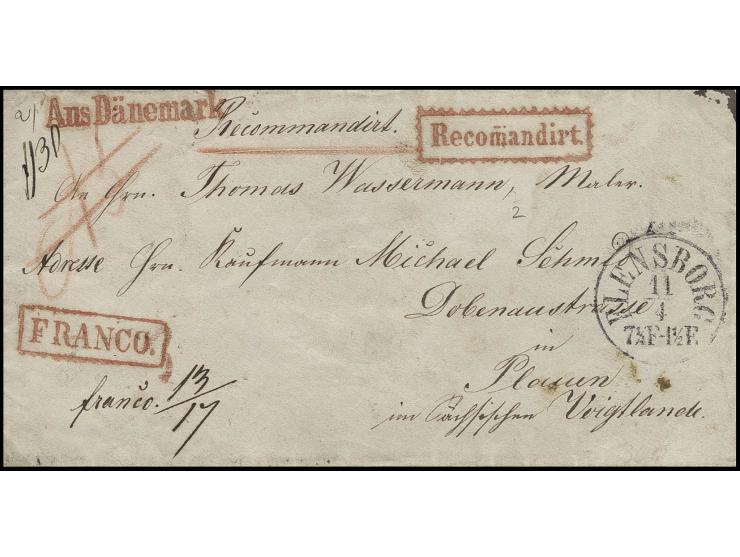 Aus Dänemark
Recommandirt.
Recom̄andirt.
An Hrn. Thomas Wassermann, Maler.
2
Adresse Hrn. Kaufmann Michael Schmi
Dobenaustrasse
FLENSBORG
11
4
7½F-1½F.
FRANCO.
in
Plauen
franco. 13/17
im Sächsischen Voigtlande.